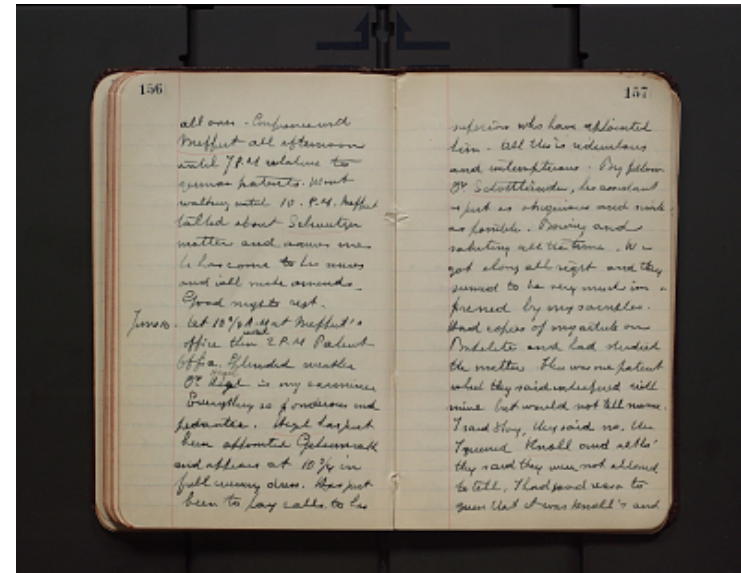 156
all over. Conference with
Meffert all afternoon
until 7 P.M relative to
various patents. Went
walking until 10. P.M. Meffert
talked about Schweitzer
matter and assures me
he has come to his senses
and will make amends.
Good night's rest.
June 10. At 10 A.M at Meffert's
office then went 2 P.M Patent
Office. Splendid weather
Dr Hegel is my examiner
Everything is ponderous and
pedantic. Hegel has just
been appointed Geheimrath
and appears at 10 3/4 in
full evening dress. Has just
been to pay calls to his
157
superiors who have appointed
him. All this is ridiculous
and
Dr, his assistant
is just as obsequious and
as possible. Bowing and
saluting all the time. We
got along all right and they
seemed to be very much im-
pressed by my samples.
Had copies of my article on
Bakelite and had studied
the matter. There was one patent
which they said interfered with
mine but would not tell name.
I said Story, they said no, then
I queried Knoll and
they said they were not allowed
to tell. I had good reason to
guess that it was Knoll's and